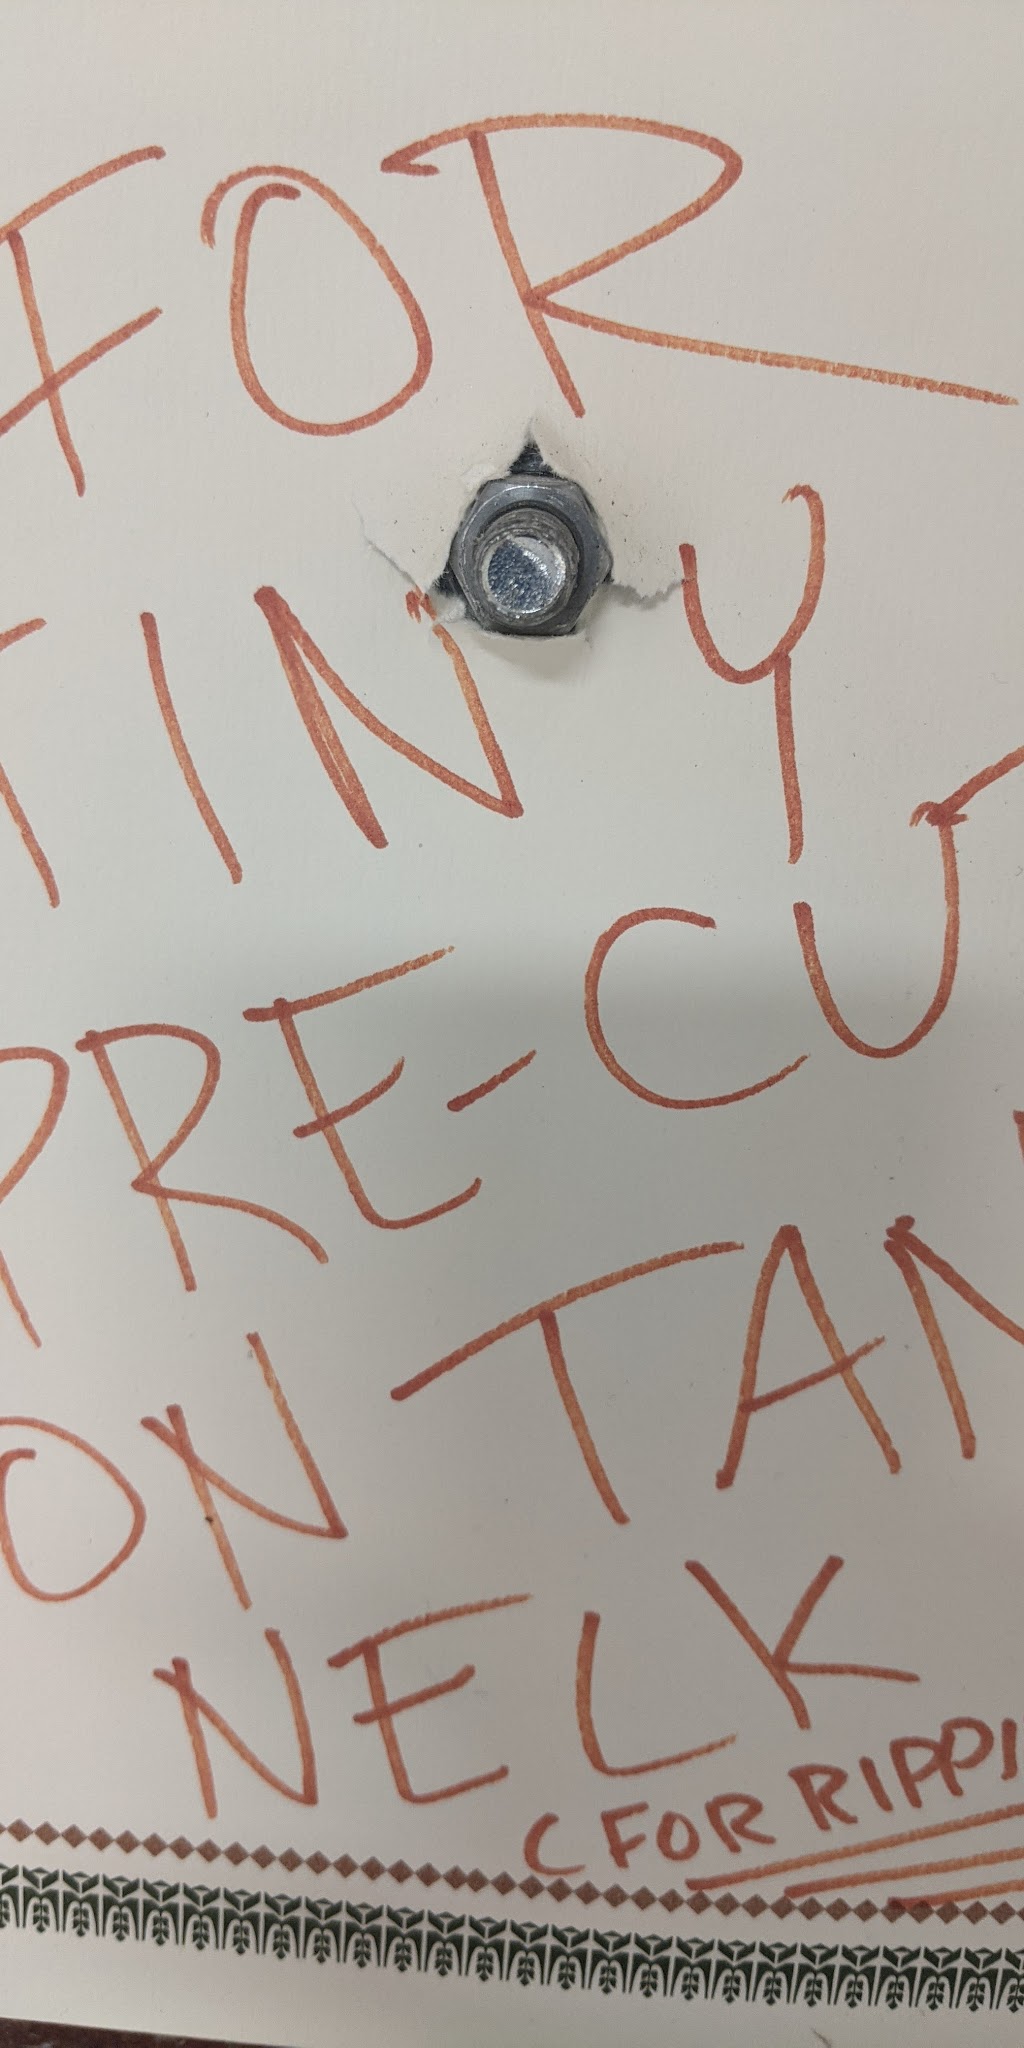 FOR
TINY
PRE-CU
ON TAN
NELK
(FOR RIPPI